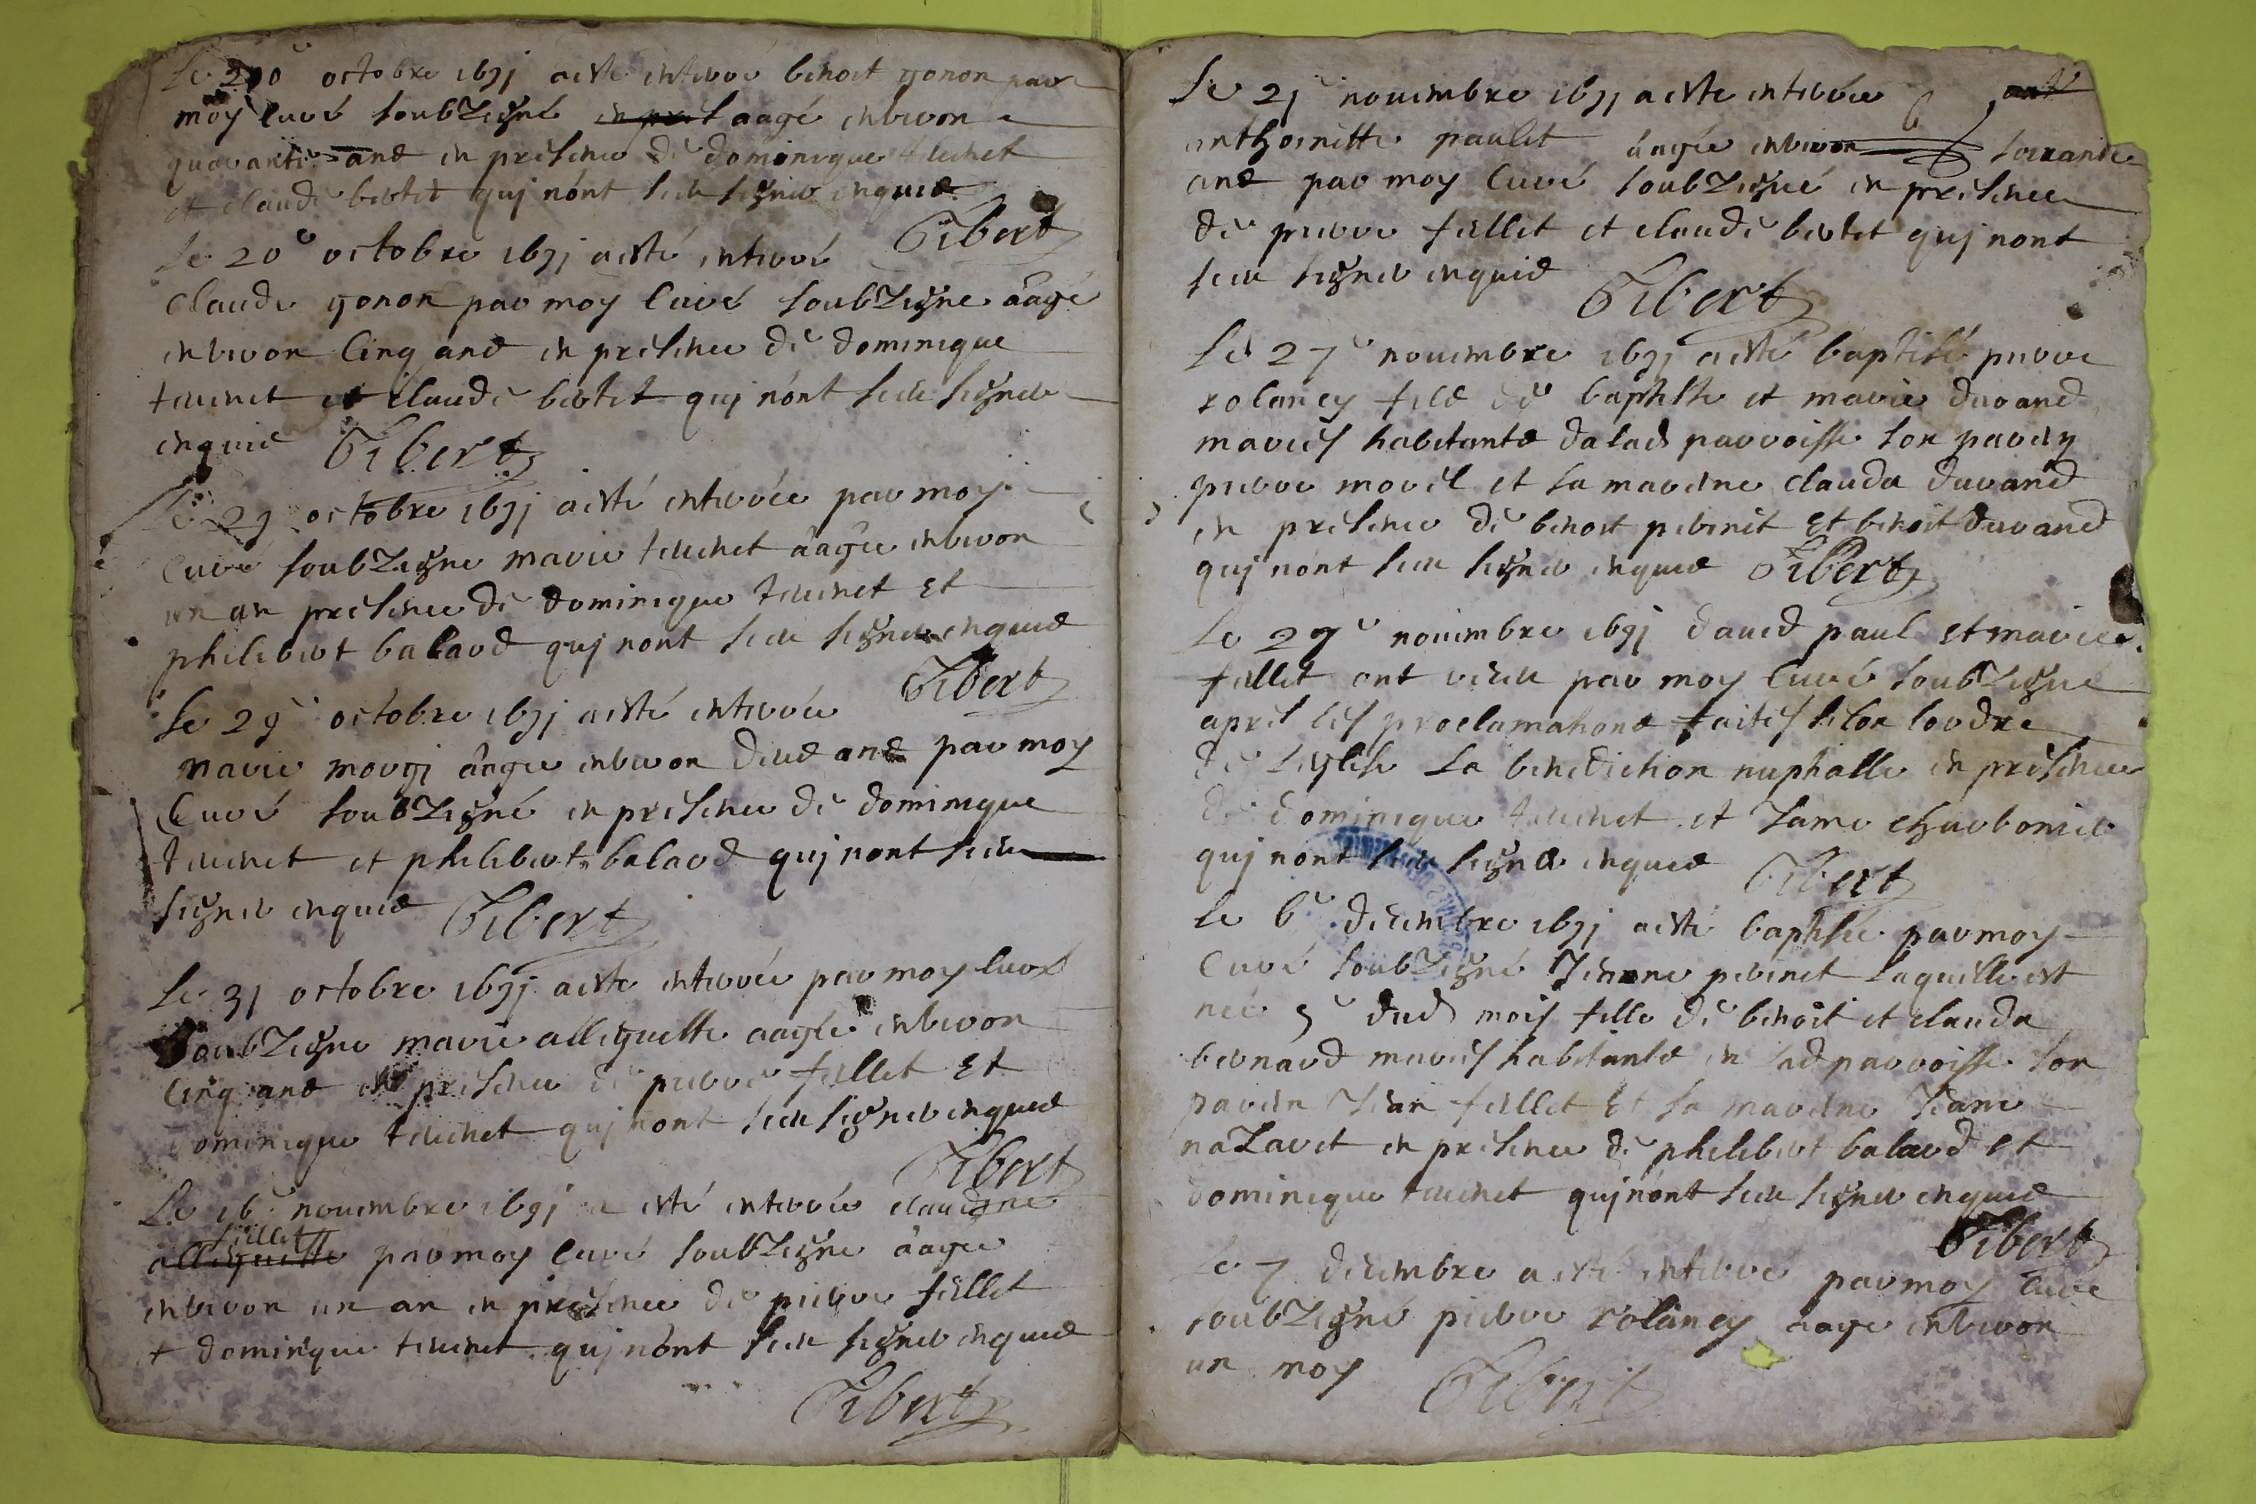 Le 20e octobre 1691 a este enterré benoit gonon par
moy curé soubzsigné en pres aagé environ
quarante ans en presence de dominique tevenet
et claude bertet quj nont sceu signer enquis
Gibert
Le 20e octobre 1691 a esté enterré
claude gonon par moy curé soubzsigne aagé
environ cinq ans en presence de dominique
tevenet et claude bertet quj nont sceu signer
enquis Gibert
Le 29 octobre 1691 a esté enterrée par moy
curé soubzsigne marie tevenet aagée environ
un an presence de dominique tevenet et
philibert balard quj nont sceu signer enquis
Gibert
Le 29e octobre 1691 a esté enterrée
marie morgj aagee environ deux ans par moy
curé soubzsigné en presence de dominique
tevenet et philibert balard quj nont sceu
signer enquis Gibert
Le 31 octobre 1691 a este enterrée par moy curé
soubzsigne marie alliquette aagée environ
cinq ans en presence de pierre fillet et
dominique tevenet quj nont sceu signer enquis
Gibert
Le 16e novembre 1691 a esté enterrée claudine
fillet
alliquette par moy curé soubzsigne aagee
environ un an en presence de pierre fillet
et dominique tevenet quj nont sceu signer enquis
Gibert
Le 21e novembre 1691 a este enterrée
anthoinette paulet aagée environ soixante
ans par moy curé soubzsigné en presence
de pierre fillet et claude bertet quj nont
sceu signer enquis
Gibert
Le 27e novembre 1691 a esté baptisé pierre
rolancy fils de baptiste et marie durand
mariés habitants da lad parroisse son parein
pierre morel et sa mareine clauda durand
en presence de benoit perinet et benoit durand
quj nont sceu signer enquis Gibert
Le 29e novembre 1691 david paul et marie
fillet ont receu par moy curé soubzsigné
apres les proclamations faites selon lordre
de leglise la benediction nuptialle en presence
de dominique tevenet et charbonier
quj nont sceu signer enquis Gibert
Le 6e decembre 1691 a esté baptisée par moy
curé soubzsigné Jeanne perinet laquelle est
née 5e dud mois fille de benoit et clauda
bernard mariés habitants en lad parroisse son
parein Jean fillet et sa mareine Jeanne
nazaret en presence de philibert balard et
dominique tevenet quj nont sceu signer enquis
Gibert
Le 7 decembre a esté enterré par moy curé
soubzsigné pierre rolancy aage environ
un moy Gibert